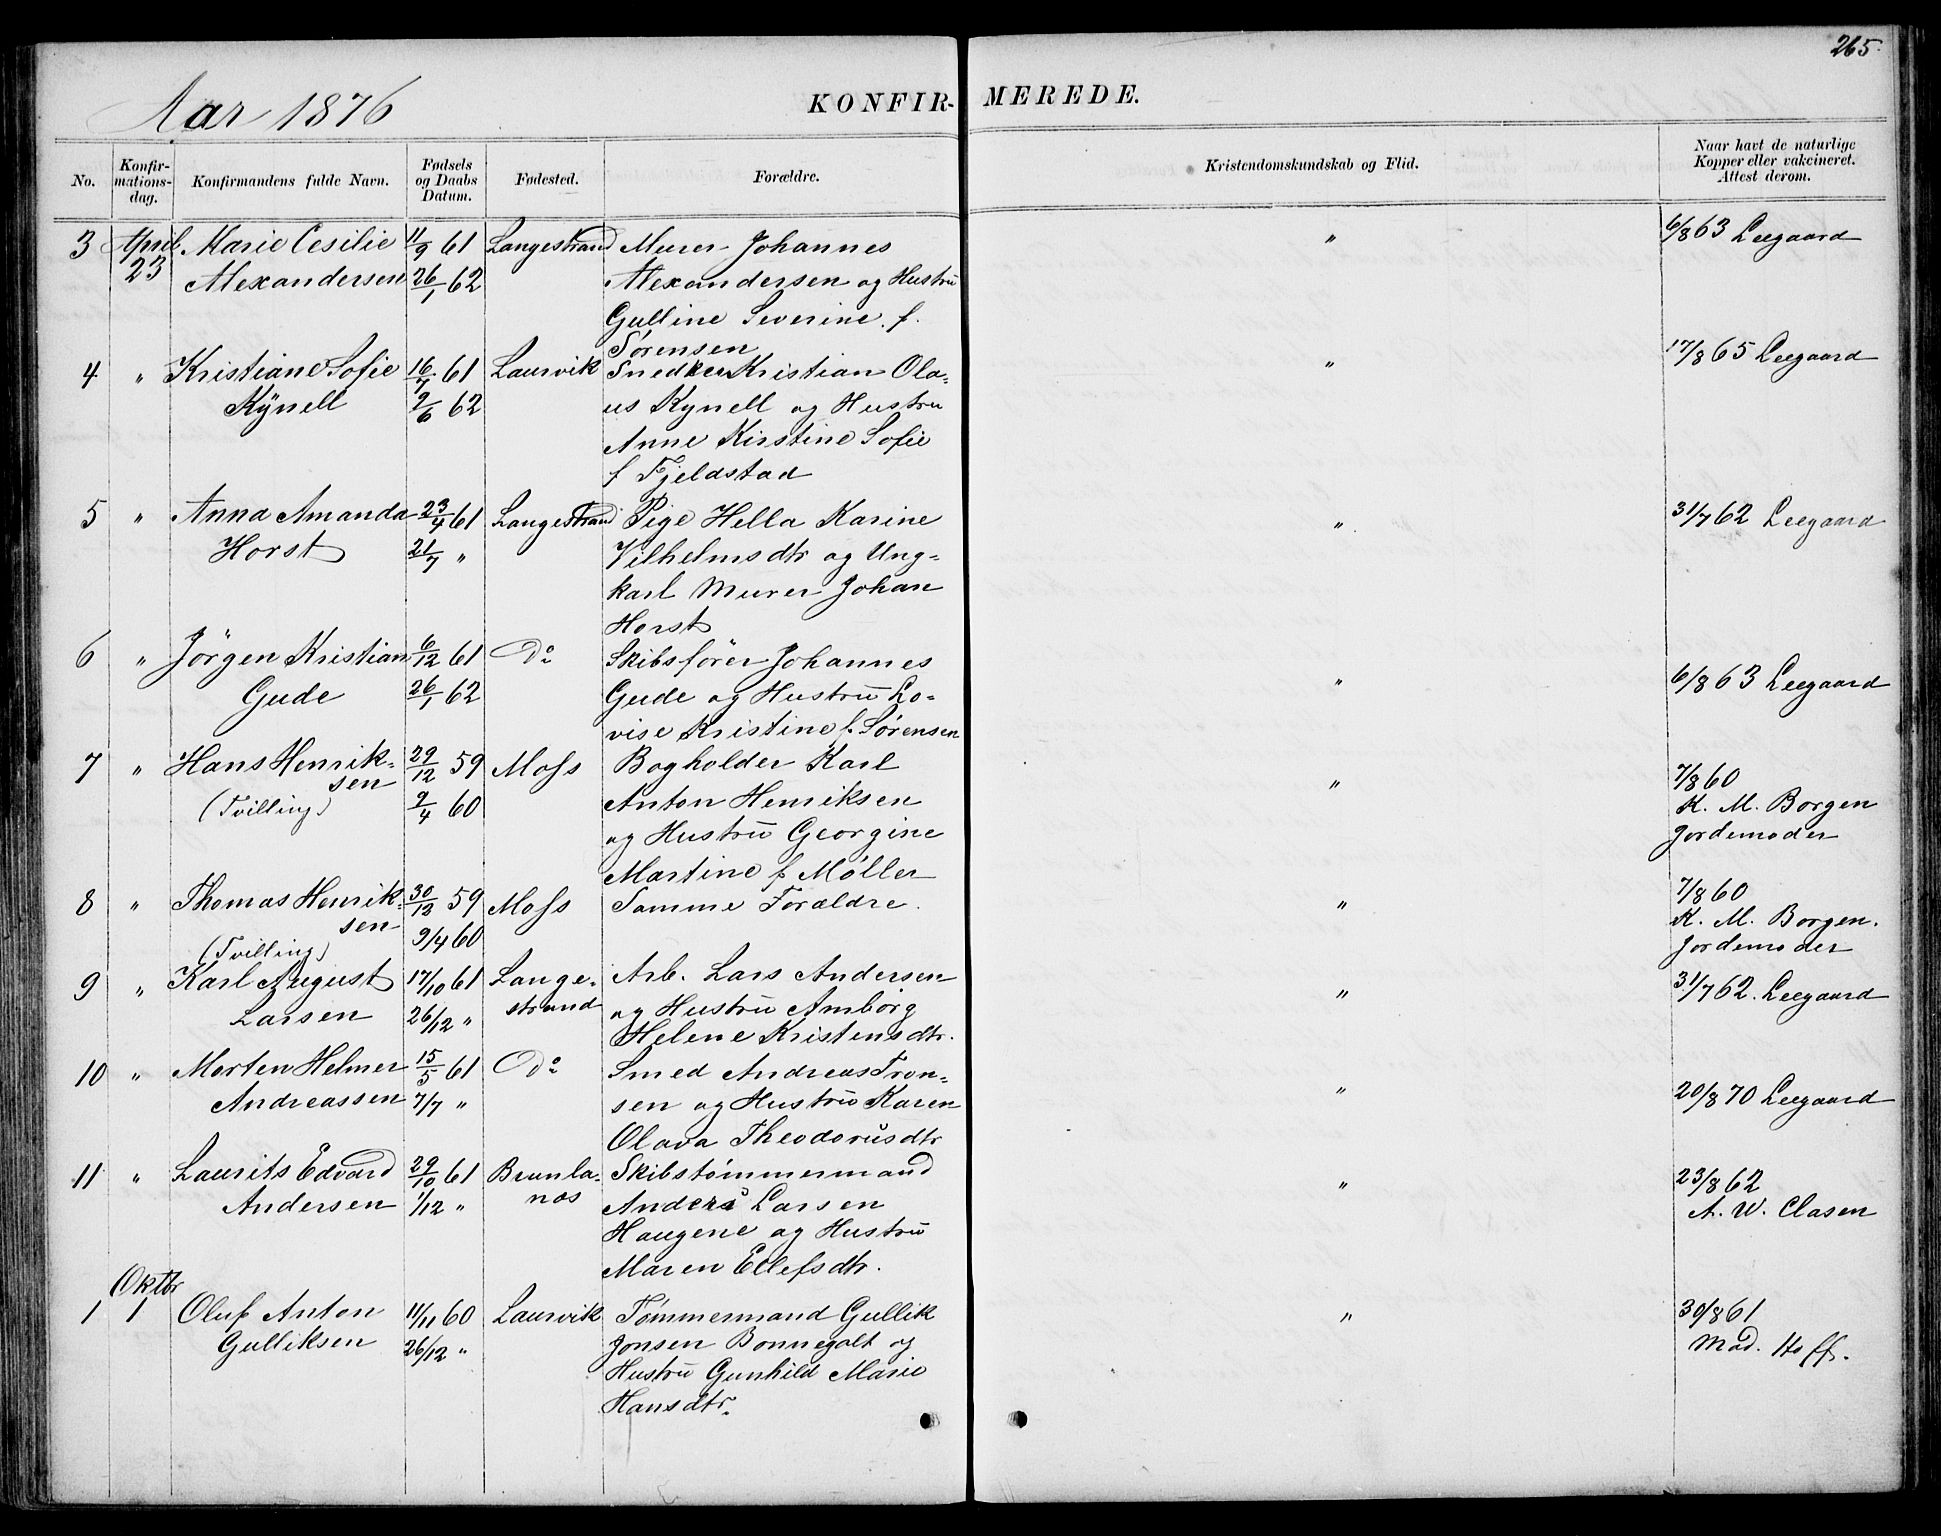 265.
Aar 1876
KONFIR-MEREDE.
No.
Konfir-
mations-
dag.
Konfirmandens fulde Navn.
Fødsels
og Daabs
Datum.
Fødested.
Forældre.
Kristendomskundskab og Flid.
Naar havt de naturlige
Kopper eller vakcineret.
Attest derom.
3 April Marie Cesilie 11/9 61 Langestrand Murer Johannes " 6/8 63 Leegaard
23 Alexandersen 26/1 62 Alexandersen og Hustru
Gulline Severine f.
Sørensen
4 " Kristiane Sofie 16/7 61 Laurvik Snedker Kristian Ola- " 17/8 65 Leegaard
Kynell 9/6 62 us Kynell og Hustru
Anne Kirstine Sofie
f Fjeldstad
5 " Anna Amanda 23/4 61 Langestrand Pige Hella Karine " 31/7 62 Leegaard
Horst 21/7 " Vilhelmsdtr og Ung-
karl Murer Johan
Horst
6 " Jörgen Kristian 6/12 61 Do Skibsfører Johannes " 6/8 63 Leegaard
Gude 26/1 62 Gude og Hustru Lo-
vise Kristine f. Sørensen
7 " Hans Henrik- 29/12 59 Moss Bogholder Karl " 7/8 60
sen
(Tvilling) 9/4 60 Anton Henriksen K. M. Borgen
og Hustru Georgine Jordemoder
Martine f Møller
8 " Thomas Henrik- 30/12 59 Moss Samme Forældre. " 7/8 60
sen K. M. Borgen.
(Tvilling) 9/4 60 Jordemoder
9 " Karl August 17/10 61 Lange- Arb. Lars Andersen " 31/7 62. Leegaard
Larsen 26/12 " strand og Hustru Amborg
Helene Kristensdtr.
10 " Morten Helmer 15/5 61 Do Smed Andreas Tron- " 20/8 70 Leegaard
Andreassen 7/7 " sen og Hustru Karen
Olava Theodorusdtr
11 " Laurits Edvard 29/10 61 Brunla- Skibstømmermand " 23/8 62
Andersen 1/12 " næs Anders Larsen A. W. Clasen
Haugene og Hustru
Maren Ellefsdtr.
Oktbr
1 1 Oluf Anton 11/11 60 Laurvik Tømmermand Gullik " 30/8 61
Gulliksen 26/12 " Jonsen Bonnegolt og Mad. Hoff.
Hustru Gunhild Marie
Hansdtr.